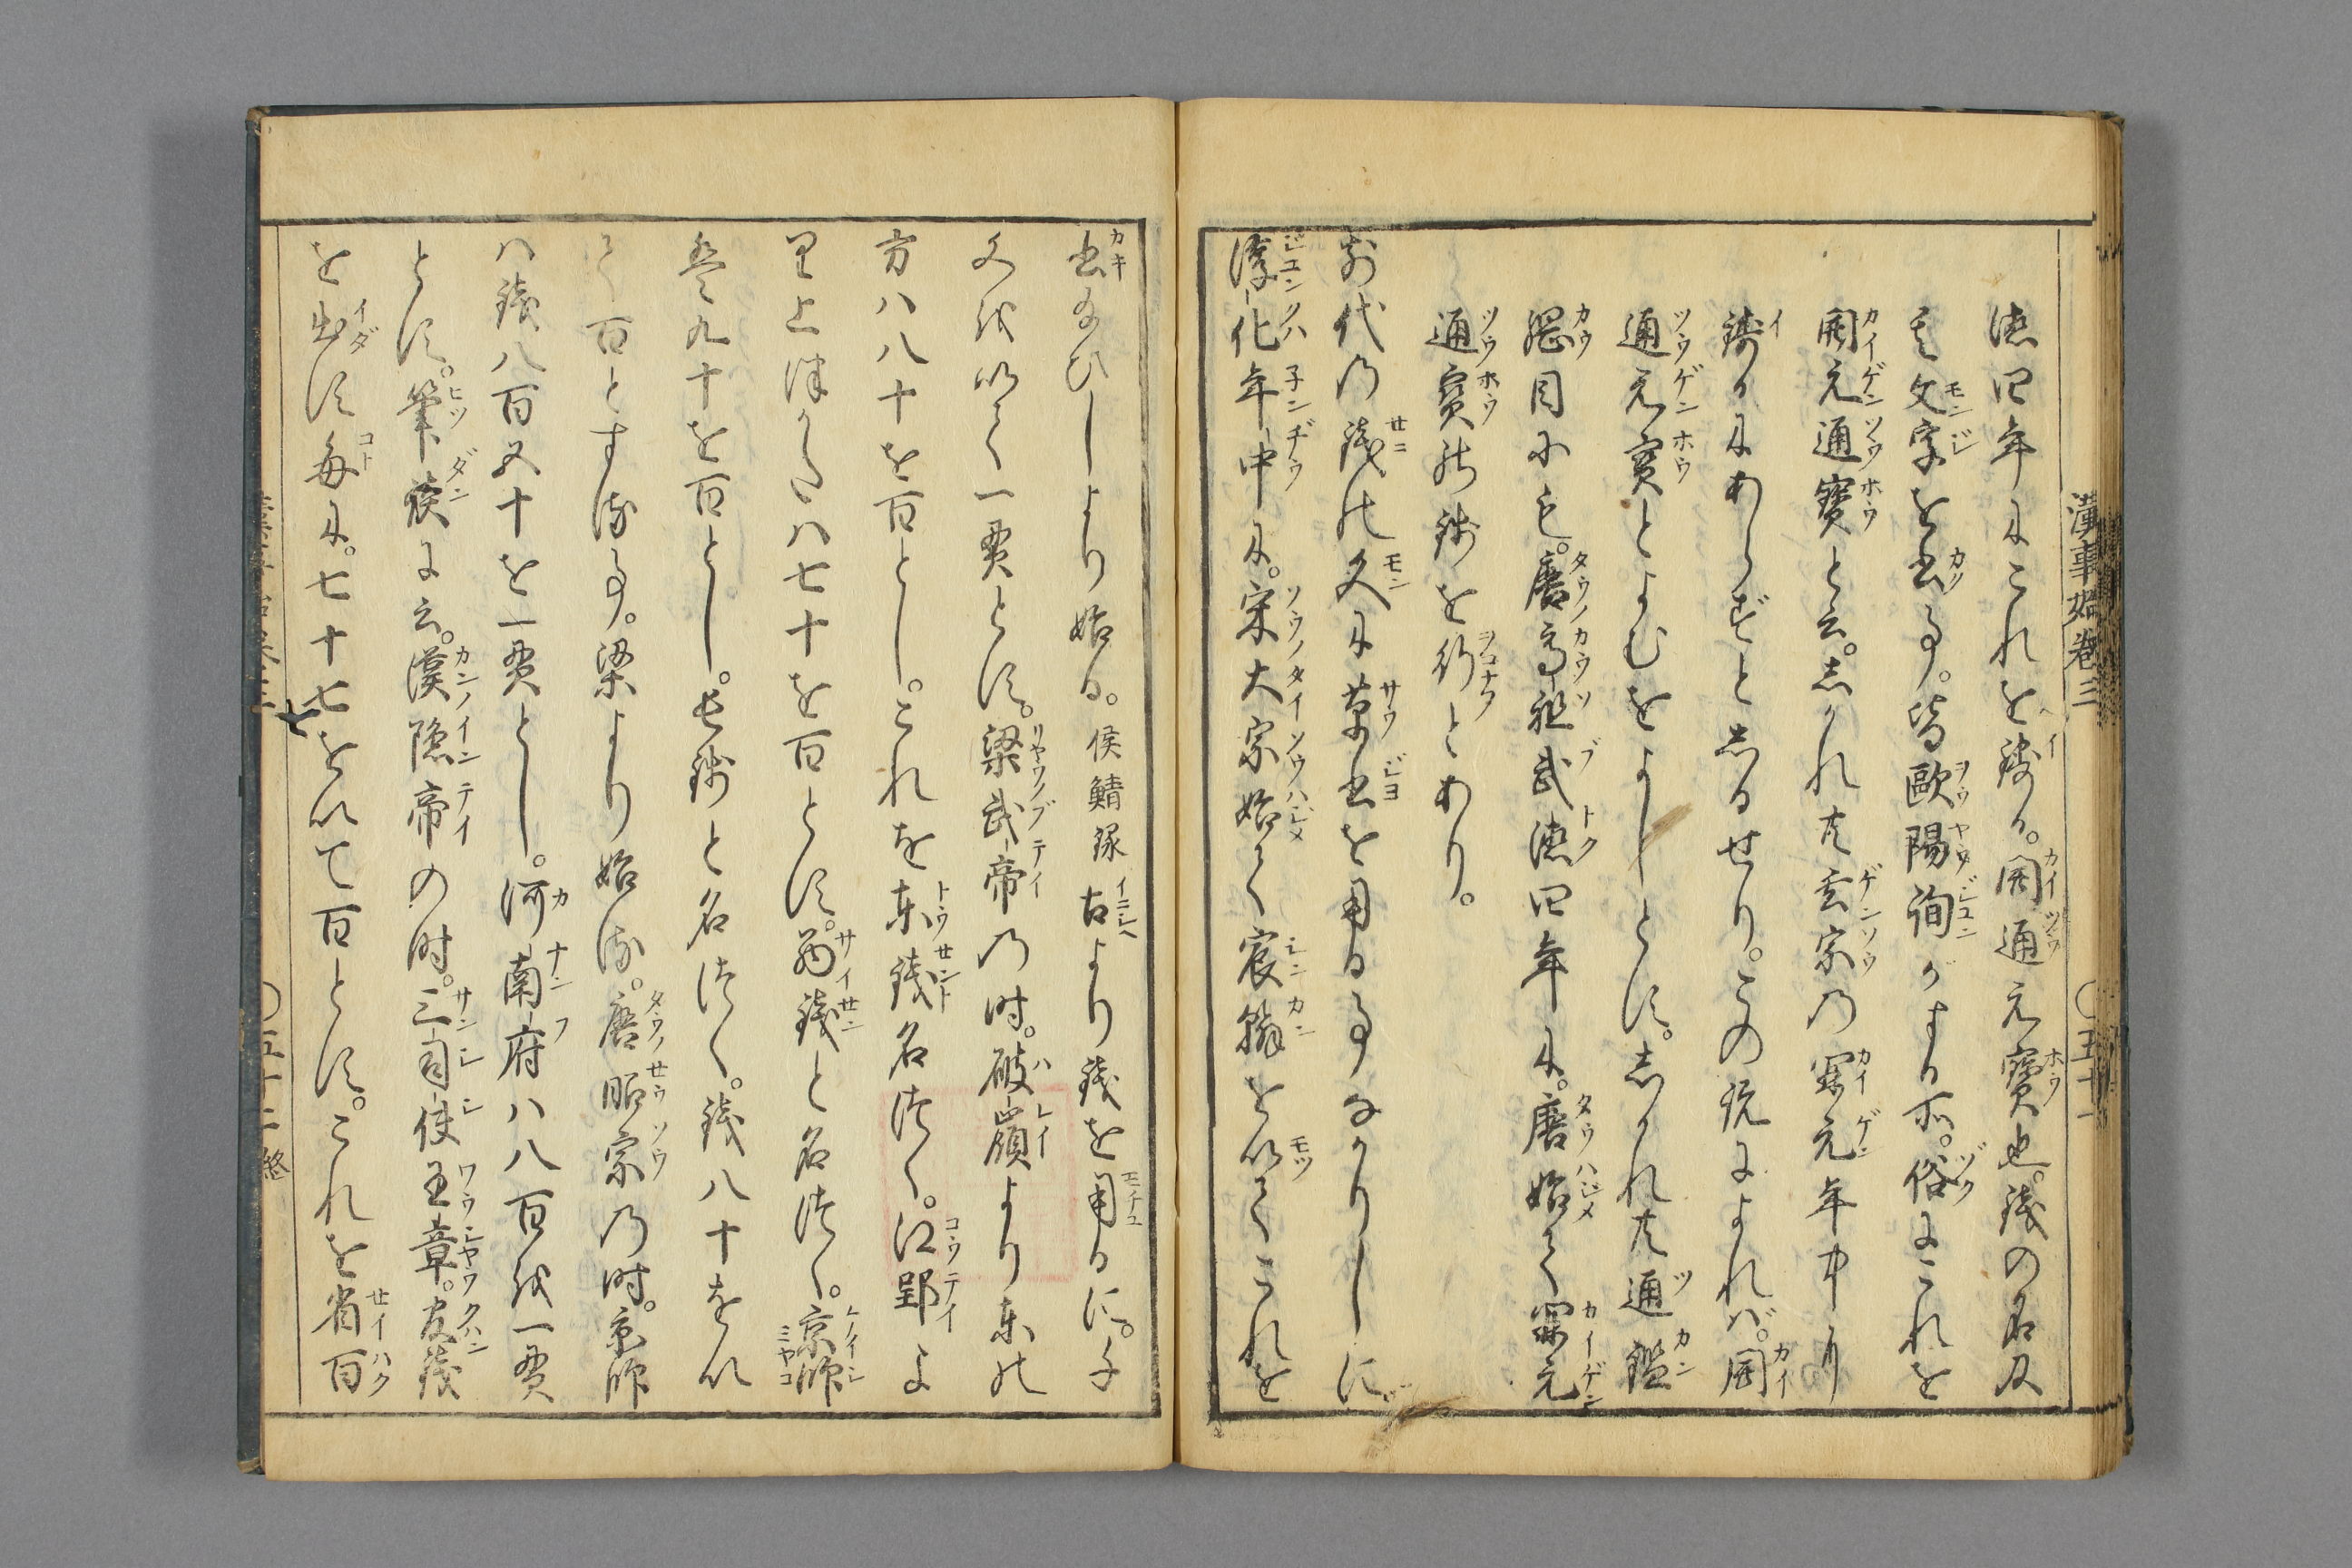 漢事始巻三
〇五十一
徳四年にこれを鋳る。開通元寳也。銭の名及
其文字を書る事。皆歐陽詢がする所。俗にこれを
開元通寳と云。しかれ共玄宗の開元年中より
鋳るにあらずとしるせり。この説によれバ。開
通元寳とよむをよしとす。しかれ共通鑑
綱目にも。唐高祖武徳四年に。唐始て開元
通寳銭を行とあり。
前代の銭の文に草書を用る事なかりしに
淳化年中に。宋大宗始て宸翰を以てこれを
書給ひしより始る。侯鯖録古より銭を用るに。千
文を以て一貫とす。梁武帝の時。破嶺より東の
方ハ八十を百とし。これを東銭と名づく。江郢よ
り上つかたハ七十を百とす。西銭と名づく。京師
ミヤコ
ハ九十を百とし。長銭と名づく。銭八十を以
て百とする事。梁より始る。唐昭宗の時。京師
ハ銭八百五十を一貫とし。河南府ハ八百を一貫
とす。筆談に云。漢隠帝の時。三司使王章。官銭
を出す毎に。七十七を以て百とす。これを省百
七
〇五十二終